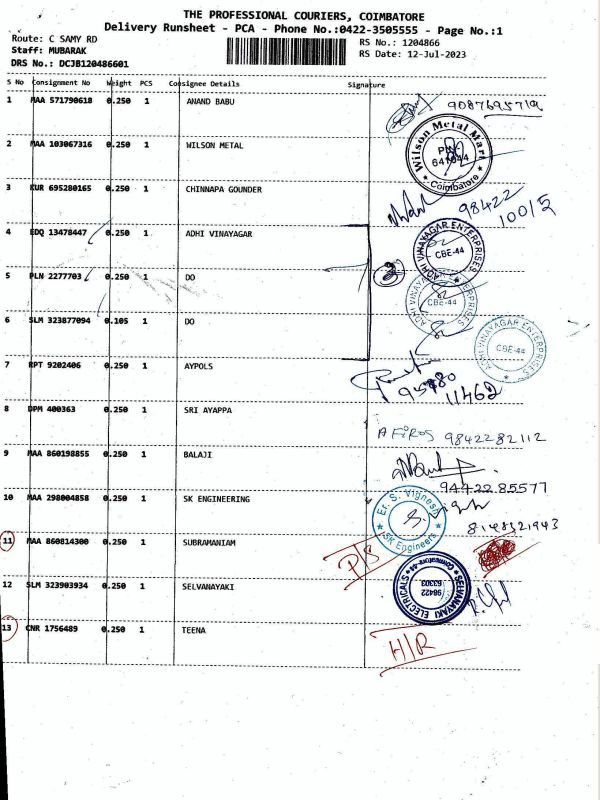 THE PROFESSIONAL COURIERS, COIMBATORE
Delivery Runsheet - PCA - Phone No.:0422-3505555 - Page No.:1
Route: C SAMY RD
RS No.: 1204866
Staff: MUBARAK
RS Date: 12-Jul-2023
DRS No.: DCJB120486601
S No Consignment No Weight PCS Consignee Details Signature
1 MAA 571790618 0.250 1 ANAND BABU 9087695719
Wilson Metal Mart
PIN- 641044
Coimbatore
2 MAA 103067316 0.250 1 WILSON METAL
3 KUR 695280165 0.250 1 CHINNAPA GOUNDER 98422
10015
4 EDQ 13478447 0.250 1 ADHI VINAYAGAR
ADHI VINAYAGAR ENTERPRISES
CBE-44
3
5 PLN 2277703 0.250 1 DO
ADHI VINAYAGAR ENTERPRISES
CBE-44
6 SLM 323877094 0.105 1 DO
ADHI VINAYAGAR ENTERPRISES
CBE-44
7 RPT 9202406 0.250 1 AYPOLS
95480
11462
8 DPM 400363 0.250 1 SRI AYAPPA
A FiROS 9842282112
9 MAA 860198855 0.250 1 BALAJI
9442285577
10 MAA 298004858 0.250 1 SK ENGINEERING
Er. S. Vignesh
SK Engineers
8148321943
11 MAA 860814300 0.250 1 SUBRAMANIAM
P/S
12 SLM 323903934 0.250 1 SELVANAYAKI
SELVANAYAKI ELECTRICALS
Coimbatore-44
98422
63303
13 CNR 1756489 0.250 1 TEENA
H/R